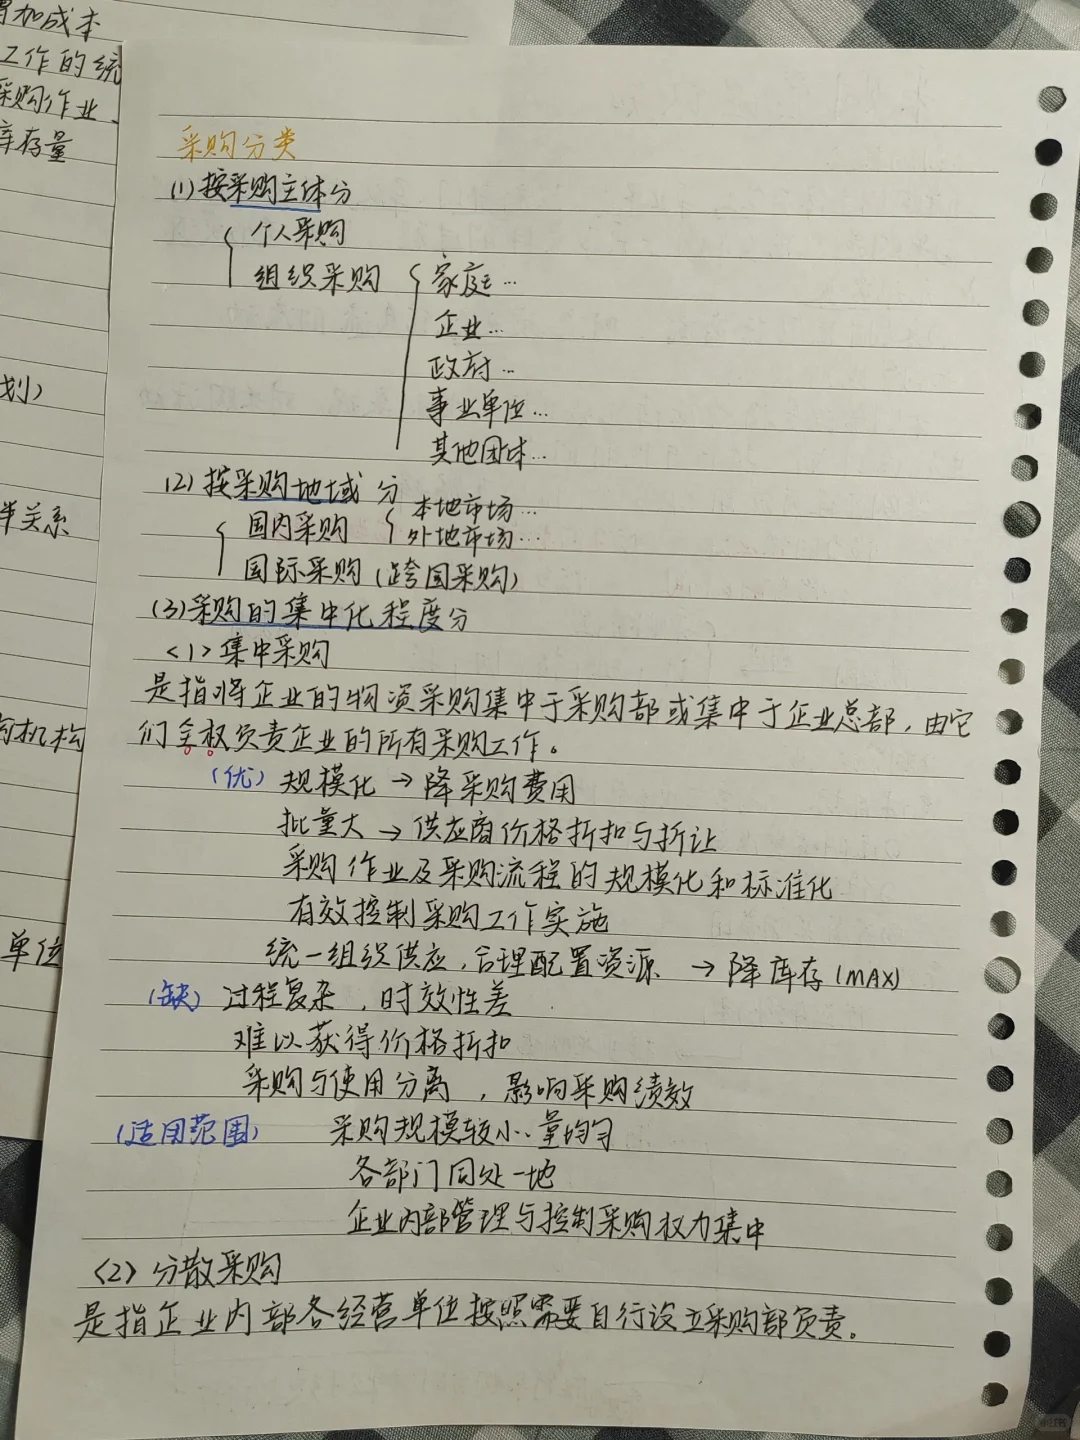 加成本
工作的统
采购作业、
库存量
划)
关系
构机构
单位
采购分类
(1)按采购主体分
个人采购
组织采购 家庭…
企业…
政府…
事业单位…
其他团体…
(2)按采购地域分
国内采购 本地市场…
外地市场…
国际采购(跨国采购)
(3)采购的集中化程度分
<1>集中采购
是指将企业的物资采购集中于采购部或集中于企业总部,由它
们全权负责企业的所有采购工作。
(优)规模化→降采购费用
批量大→供应商价格折扣与折让
采购作业及采购流程的规模化和标准化
有效控制采购工作实施
统一组织供应,合理配置资源 →降库存(MAX)
(缺)过程复杂,时效性差
难以获得价格折扣
采购与使用分离,影响采购绩效
(适用范围) 采购规模较小、量均匀
各部门同处一地
企业内部管理与控制采购权力集中
<2>分散采购
是指企业内部各经营单位按照需要自行设立采购部负责。